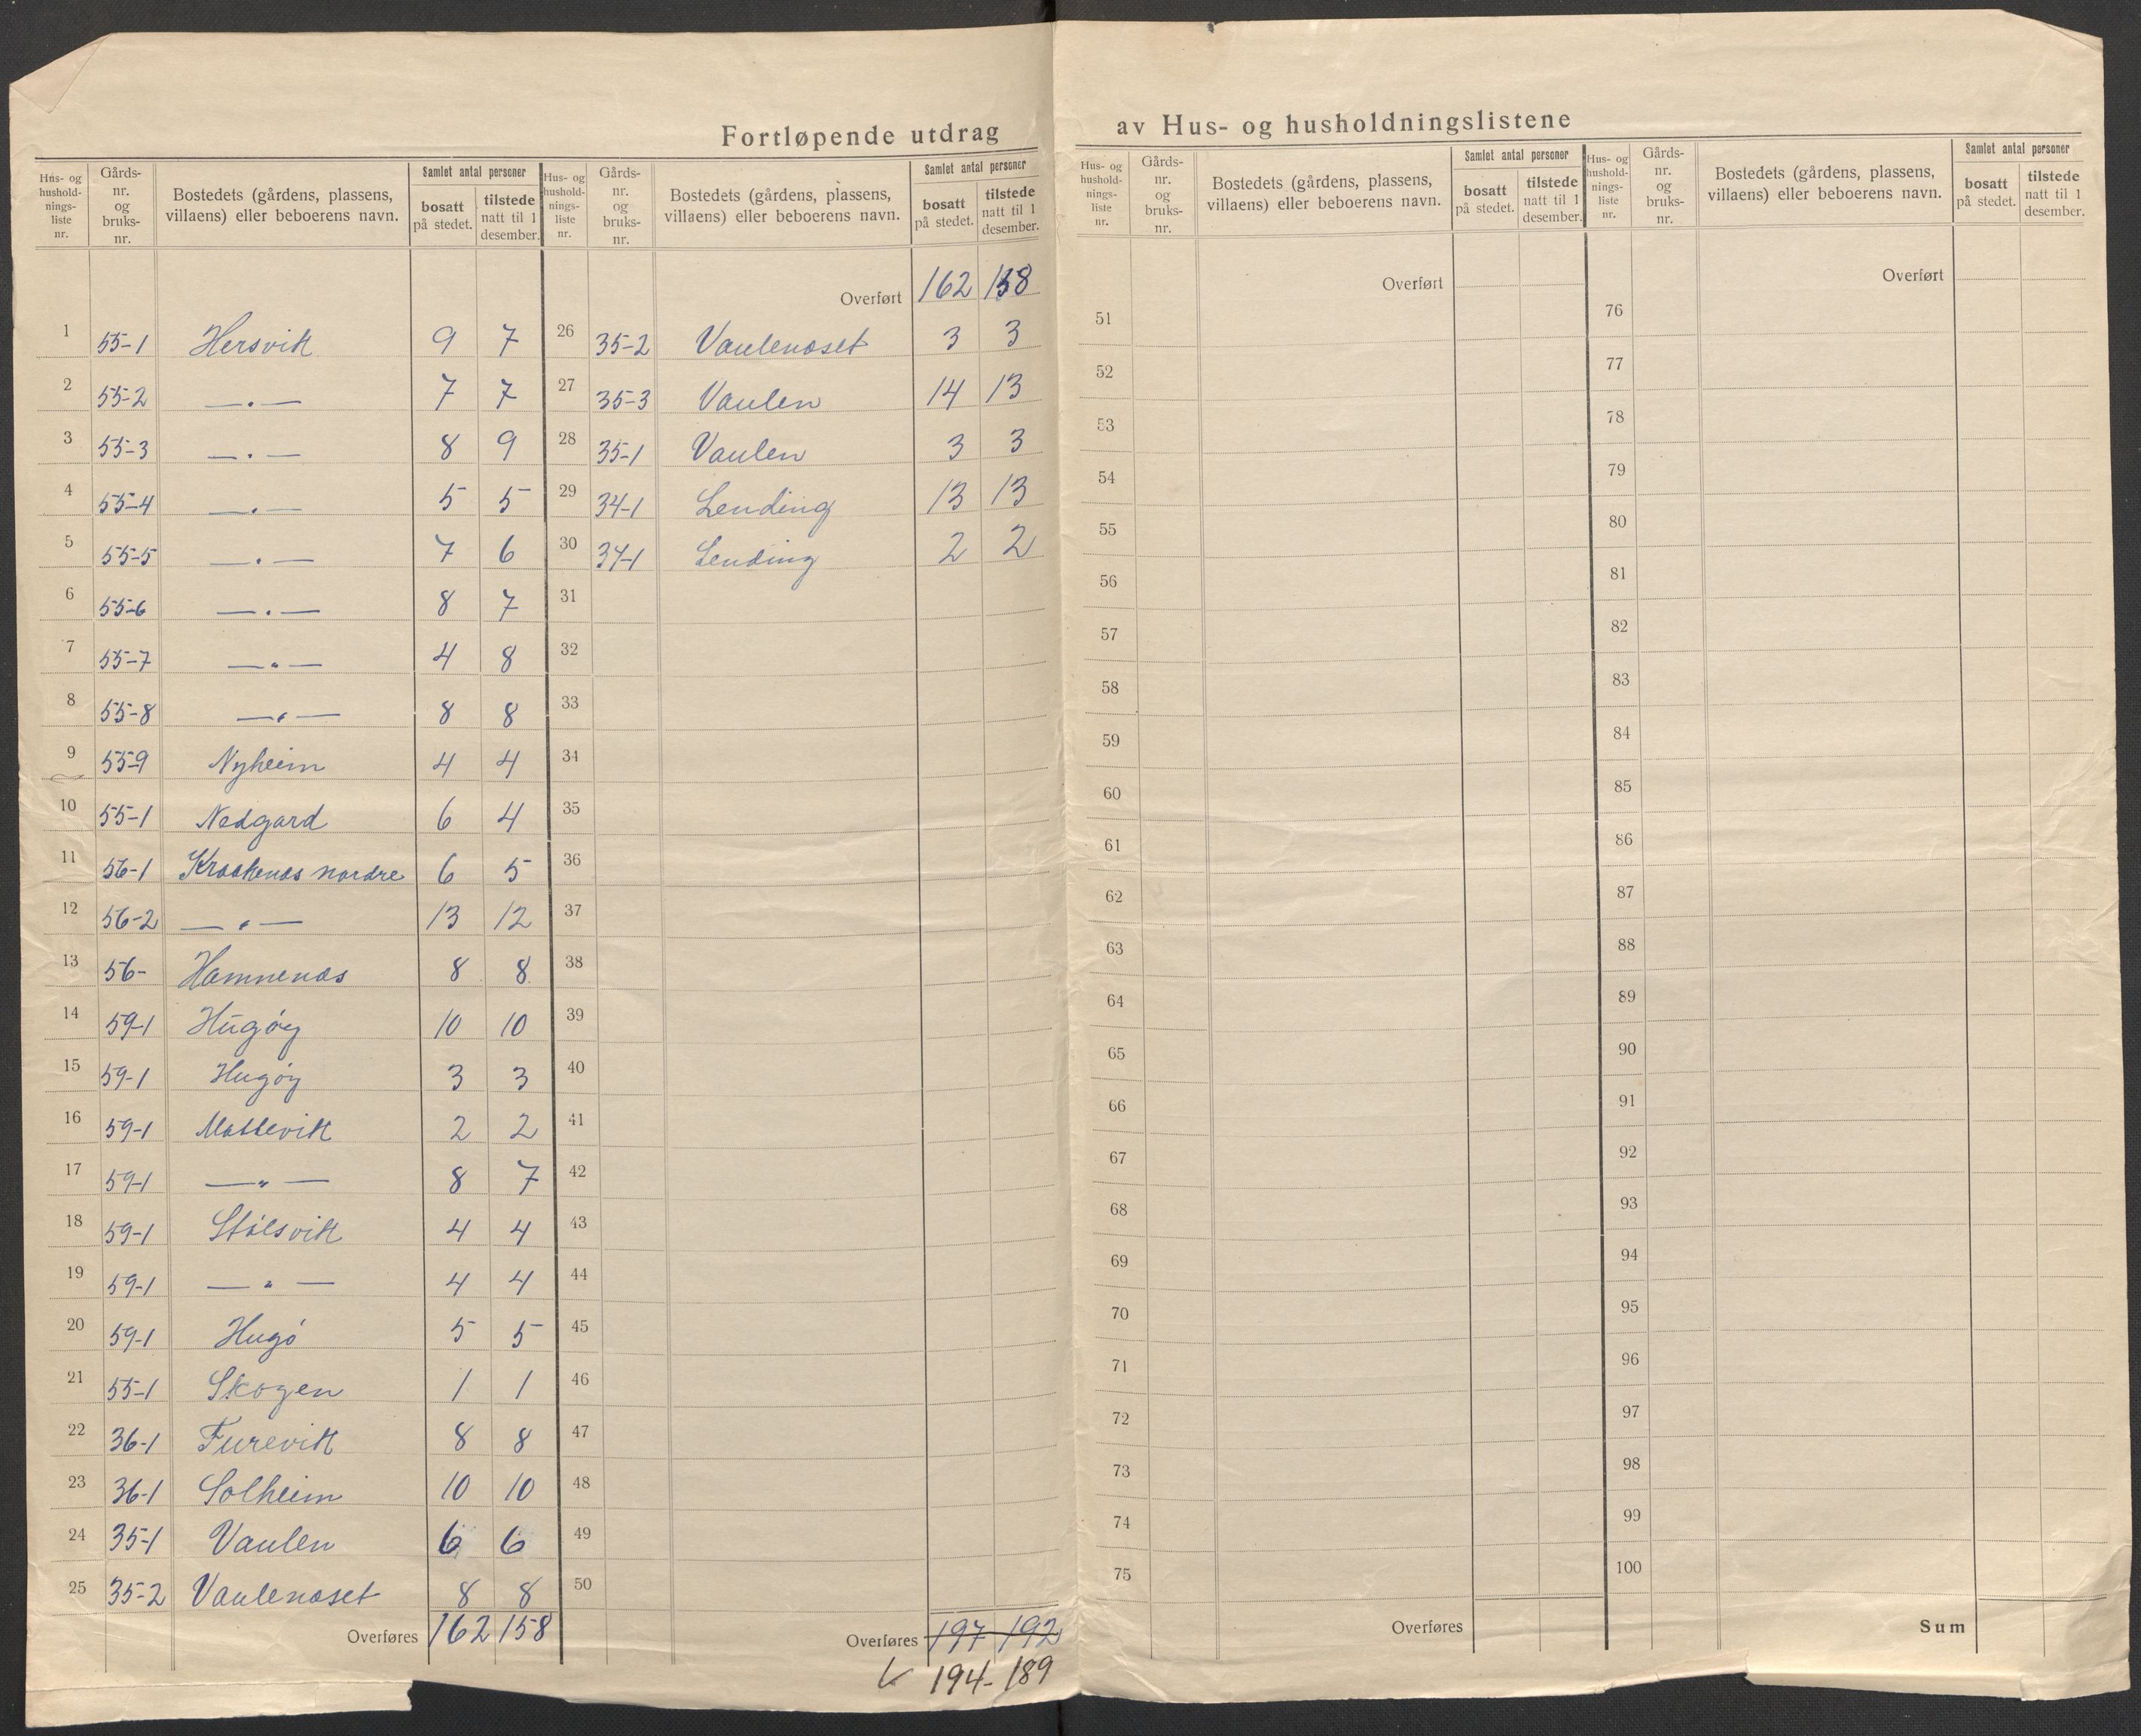 Fortløpende utdrag av Hus- og husholdningslistene
Hus- og hushold-nings-liste nr. Gårds-nr. og bruks-nr. Bostedets (gårdens, plassens, villaens) eller beboerens navn. Samlet antal personer bosatt på stedet. tilstede natt til 1 desember.
1 55-1 Hersvik 9 7
2 55-2 —„— 7 7
3 55-3 —„— 8 9
4 55-4 —„— 5 5
5 55-5 —„— 7 6
6 55-6 —„— 8 7
7 55-7 —„— 4 8
8 55-8 —„— 8 8
9 55-9 Nyheim 4 4
10 55-1 Nedgard 6 4
11 56-1 Kraakenæs nordre 6 5
12 56-2 —„— 13 12
13 56- Hamnenæs 8 8
14 59-1 Hugøy 10 10
15 59-1 Hugøy 3 3
16 59-1 2 2
17 59-1 —„— 8 7
18 59-1 Stølsvik 4 4
19 59-1 —„— 4 4
20 59-1 Hugø 5 5
21 55-1 Skogen 1 1
22 36-1 Furevik 8 8
23 36-1 Solheim 10 10
24 35-1 Vaulen 6 6
25 35-2 Vaulenæset 8 8
Overføres 162 158
Hus- og hushold-nings-liste nr. Gårds-nr. og bruks-nr. Bostedets (gårdens, plassens, villaens) eller beboerens navn. Samlet antal personer bosatt på stedet. tilstede natt til 1 desember.
Overført 162 158
26 35-2 Vaulenæset 3 3
27 35-3 Vaulen 14 13
28 35-1 Vaulen 3 3
29 34-1 Lending 13 13
30 34-1 Lending 2 2
31
32
33
34
35
36
37
38
39
40
41
42
43
44
45
46
47
48
49
50
Overføres 197 192
194-189
Hus- og hushold-nings-liste nr. Gårds-nr. og bruks-nr. Bostedets (gårdens, plassens, villaens) eller beboerens navn. Samlet antal personer bosatt på stedet. tilstede natt til 1 desember.
Overført
51
52
53
54
55
56
57
58
59
60
61
62
63
64
65
66
67
68
69
70
71
72
73
74
75
Overføres
Hus- og hushold-nings-liste nr. Gårds-nr. og bruks-nr. Bostedets (gårdens, plassens, villaens) eller beboerens navn. Samlet antal personer bosatt på stedet. tilstede natt til 1 desember.
Overført
76
77
78
79
80
81
82
83
84
85
86
87
88
89
90
91
92
93
94
95
96
97
98
99
100
Sum